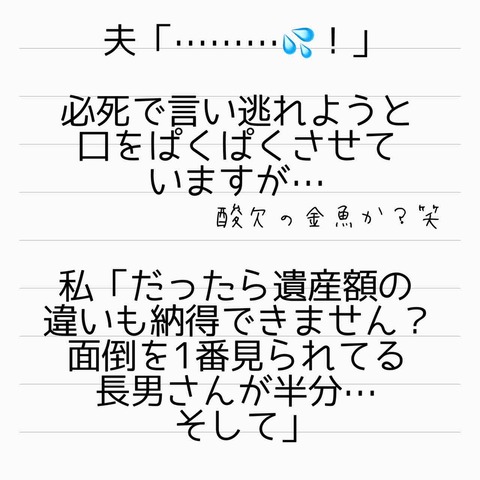 夫「………💦！」
必死で言い逃れようと
口をぱくぱくさせて
いますが…
酸欠の金魚か？笑
私「だったら遺産額の
違いも納得できません？
面倒を1番見られてる
長男さんが半分…
そして」